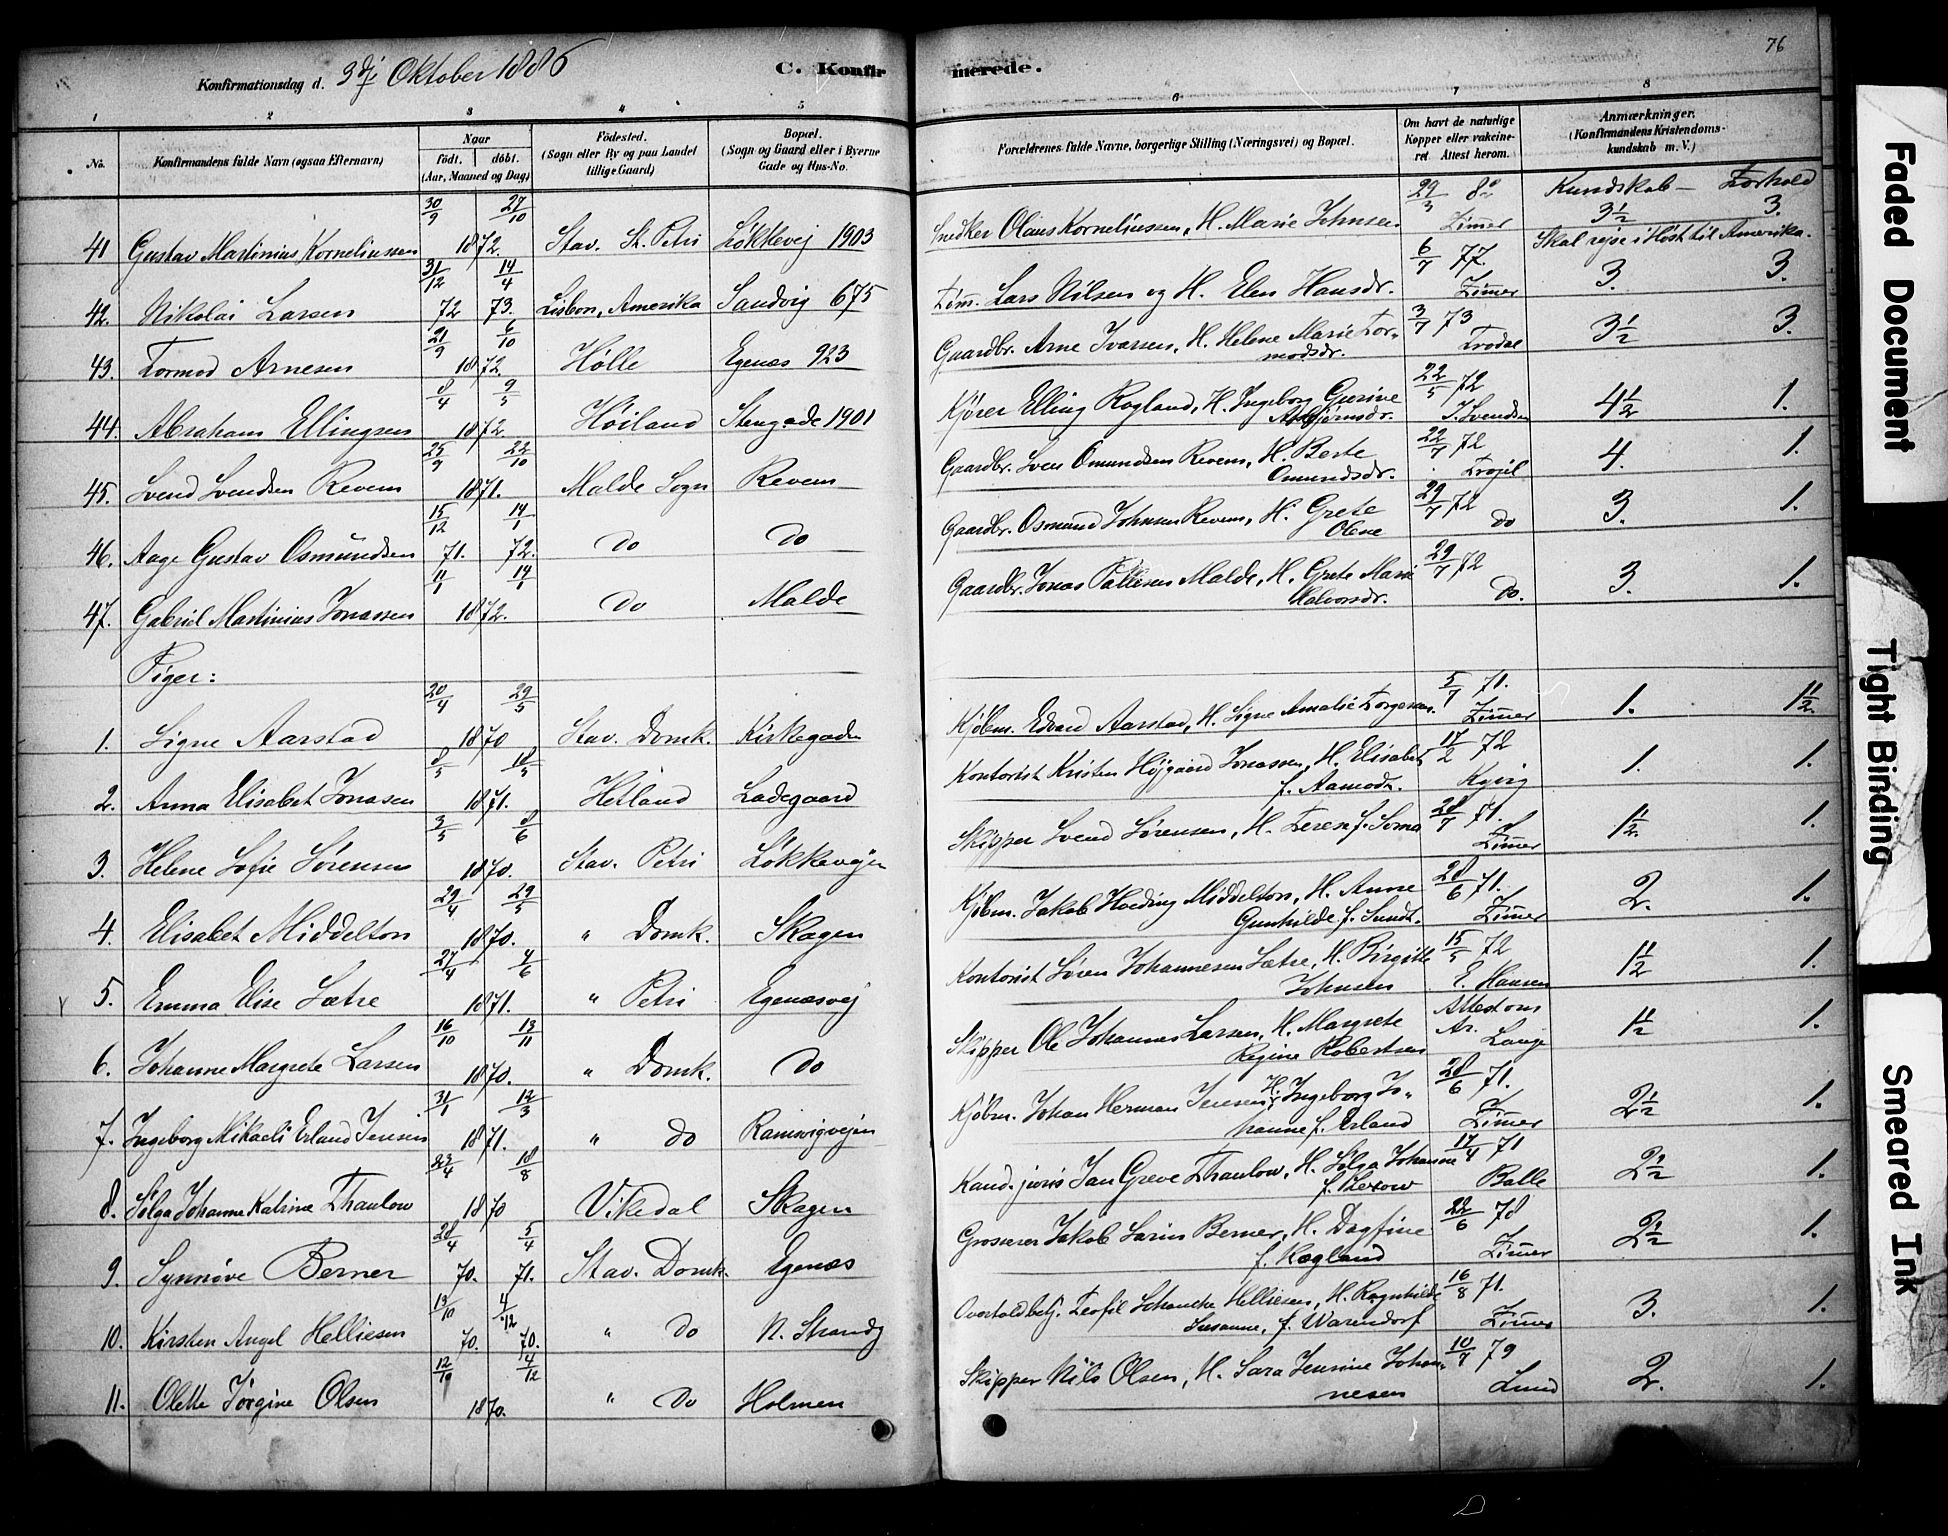 76
Konfirmationsdag d. 3dje Oktober 1886
C. Konfirmerede.
1 2 3 4 5 6 7 8
No.
Konfirmandens fulde Navn (ogsaa Efternavn)
Naar
født. døbt.
(Aar, Maaned og Dag)
Fødested.
(Sogn eller By og paa Landet
tillige Gaard)
Bopæl.
(Sogn og Gaard eller i Byerne
Gade og Hus-No.
Forældrenes fulde Navne, borgerlige Stilling (Næringsvei) og Bopæl.
Om havt de naturlige
Kopper eller vakcine-
ret Attest herom.
Anmærkninger.
(Konfirmandens Kristendoms-
kundskab m. V.)
Kundskab – Forhold
41 Gustav Martinius Korneliussen 30/9 1872. 27/10 Stav. St. Petri Løkkevej 1903 Snedker Olaus Korneliussen, H. Marie Johnsen 29/3 Zimer 3½ 3.
Skal rejse i Høst til Amerika.
42. Nikolai Larsen 31/12 72 14/4 73. Lisbon, Amerika Sandvig 675 Tøm. Lars Nilsen og H. Elen Hansdr. 6/7 77. Zimer 3. 3.
43. Tormod Arnesen 21/9 1872. 6/10 Hølle Egenæs 923 Gaardbr. Arne Ivarsen, H. Helene Marie Tor-
modsdr. 3/7 73 Trodal 3½ 3.
44. Abraham Ellingsen 8/4 1872. 9/5 Høiland Stengade 1901 Kjører Elling Rogland, H. Ingeborg Gurine
Asbjørnsdr. 22/5 72 J. Svendsen 4½ 1.
45. Svend Svendsen Revem 25/9 1871. 22/10 Malde Sogn Revem Gaardbr. Sven Omundsen Revem, H. Berte
Omundsdr. 22/7 72 4. 1.
46. Aage Gustav Osmundsen 15/12 71. 14/1 72. Do Do Gaardbr. Osmund Johnsen Revem, H. Grete
Olene 29/7 72 do 3. 1.
47. Gabriel Martinius Jonassen 11/1 1872. 14/1 Do Malde Gaardbr. Jonas Pallesen Malde, H. Grete Marie
Halvorsdr. 29/7 72 Do. 3. 1.
Piger:
1. Signe Aarstad 20/4 1870 29/5 Stav. Domk. Kirkegaden Kjøbm. Edvard Aarstad, H. Signe Amalie Torgersen 5/7 71. Zimer 1. 1½.
2. Anna Elisabet Jonasen 8/5 1871. 18/5 Hetland Ladegaard Kontorist Kristen Højgaard Jonassen, H. Elisabet
f. Aamodt. 17/2 72 Kyvig 1. 1.
3. Helene Sofie Sørensen 3/5 1870. 8/6 Stav. Petri Løkkevejen Skipper Svend Sørensen, H. Terese f. Soma 28/7 71. Zimer 1½. 1.
4. Elisabet Middelton 29/4 1870. 29/5 " Domk. Skagen Kjøbm. Jakob Hoeding Middelton, H. Anne
Gunhilde f. Sundt. 28/6 71. Zimer 2. 1.
5. Emma Elise Sætre 27/4 1871. 4/6 " Petri Egenæsvej Kontorist Søren Johannesen Sætre, H. Birgitte
Johnsen 15/5 72 E. Hansen 1½ 1.
6. Johanne Margrete Larsen 16/10 1870. 13/11 " Domk. Do Skipper Ole Johannes Larsen, H. Margrete
Regine Robertsen Attest om
Ar. Lange 1½ 1.
7. Ingeborg Mikaeli Erland Jensen 31/1 1871. 12/3 " do Ramsvigvejen Kjøbm. Johan Herman Jensen, H. Ingeborg Jo-
hanne f. Erland 28/6 71. Zimer 2½ 1.
8. Helga Johanne Katrine Thaulow 23/4 1870 18/8 Vikedal Skagen Kand. juris Jan Greve Thaulow, H. Helga Johanne
f. Lexow 17/4 71 Balle 2½ 1.
9. Synnøve Berner 28/4 70. 5/4 71. Stav. Domk. Egenæs Grosserer Jakob Sarius Berner, H. Dagfine
f. Kogland 22/6 78 Zimer 2½ 1.
10. Kirsten Angel Helliesen 13/10 70. 4/12 70. " do N. Strandg Overtoldbetj. Teofil Schancke Helliesen, H. Ragnhilde
Susanne, f. Warendorf 16/8 71. Zimer 3. 1.
11. Olette Jørgine Olsen 12/10 1870. 4/12 " Do Holmen Skipper Nils Olsen, H. Sara Jensine Johan-
nesen 10/7 79 Lund 2. 1.
Faded Document
Tight Binding
Smeared Ink